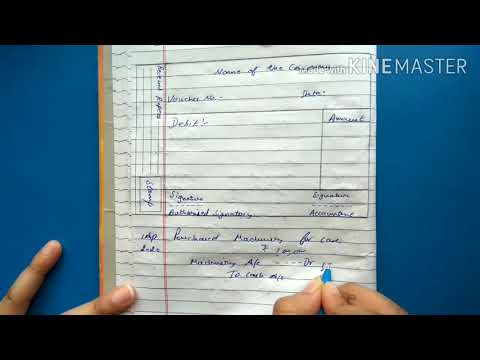 Made with KINEMASTER
Name of the Company
Voucher No -
Date:
Debit:-
Amount
Signature
Signature
Authorised Signatory
Accountant
Stamp
Purchased Machinery for cash
Machinery A/c ----- Dr
To Cash A/c